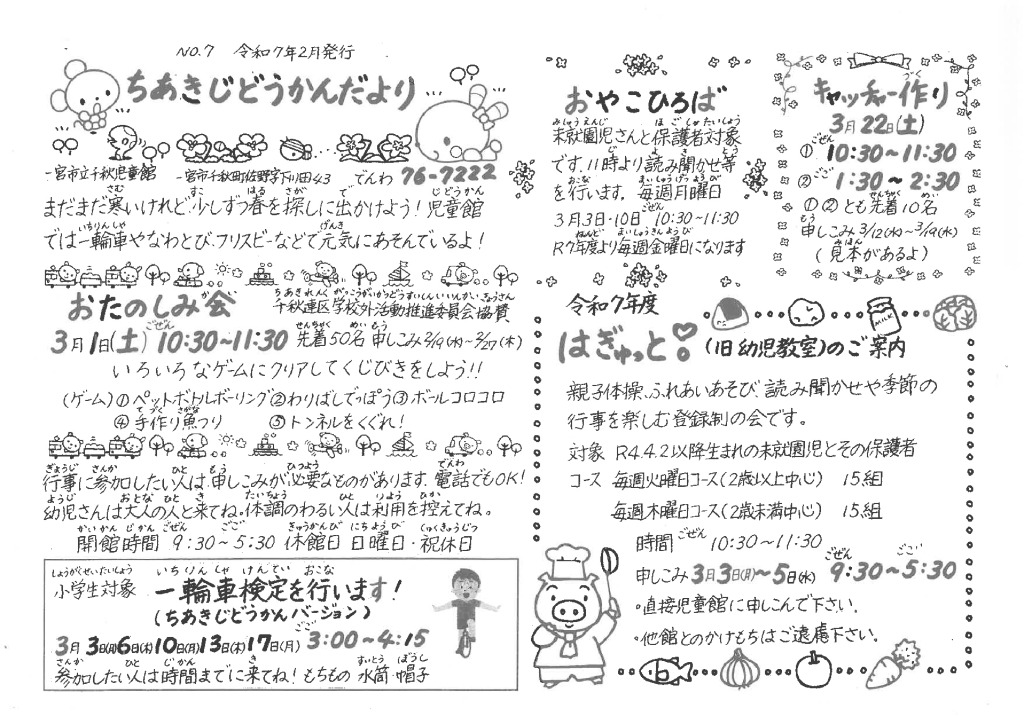 NO.7 令和7年2月発行
ちあきじどうかんだより
一宮市立千秋児童館 一宮市千秋町佐野字下川田43 でんわ 76-7222
まだまだ寒いけれど、少しずつ春を探しに出かけよう！児童館
では一輪車やなわとび、フリスビーなどで元気にあそんでいるよ！
おたのしみ会 千秋連区学校外活動推進委員会協賛
3月1日(土) 10:30～11:30 先着50名 申しこみ2/19(水)～2/27(木)
いろいろなゲームにクリアしてくじびきをしよう！！
(ゲーム)①ペットボトルボーリング②わりばしでっぽう③ボールコロコロ
④手作り魚つり ⑤トンネルをくぐれ！
行事に参加したい人は、申しこみが必要なものがあります。電話でもOK！
幼児さんは大人の人と来てね。体調のわるい人は利用を控えてね。
開館時間 9:30～5:30 休館日 日曜日・祝休日
小学生対象 一輪車検定を行います！
(ちあきじどうかんバージョン)
3月3日(月)6日(木)10日(月)13日(木)17日(月) 3:00～4:15
参加したい人は時間までに来てね！もちもの 水筒・帽子
おやこひろば
未就園児さんと保護者対象
です。11時より読み聞かせ等
を行います。毎週月曜日
3月3日・10日 10:30～11:30
R7年度より毎週金曜日になります
キャッチャー作り
3月22日(土)
① 10:30～11:30
② 1:30～2:30
①②とも先着10名
申しこみ3/12(水)～3/19(水)
(見本があるよ)
令和7年度
はぎゅっと！(旧幼児教室)のご案内
MILK
親子体操、ふれあいあそび、読み聞かせや季節の
行事を楽しむ登録制の会です。
対象 R4.4.2以降生まれの未就園児とその保護者
コース 毎週火曜日コース(2歳以上中心) 15組
毎週木曜日コース(2歳未満中心) 15組
時間 10:30～11:30
申しこみ3月3日(月)～5日(水) 9:30～5:30
・直接児童館に申しこんで下さい。
・他館とのかけもちはご遠慮下さい。